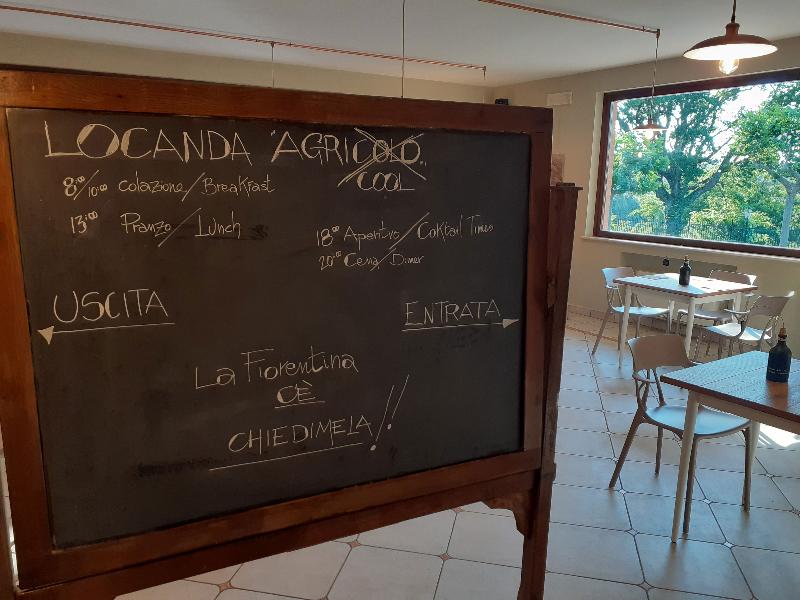 LOCANDA AGRICOLO
COOL
8:00/10:00 colazione/Breakfast
13:00 Pranzo/Lunch
18:00 Aperitivo/Coktail Times
20:00 Cena/Dinner
USCITA
ENTRATA
La Fiorentina
C'È
CHIEDIMELA!!